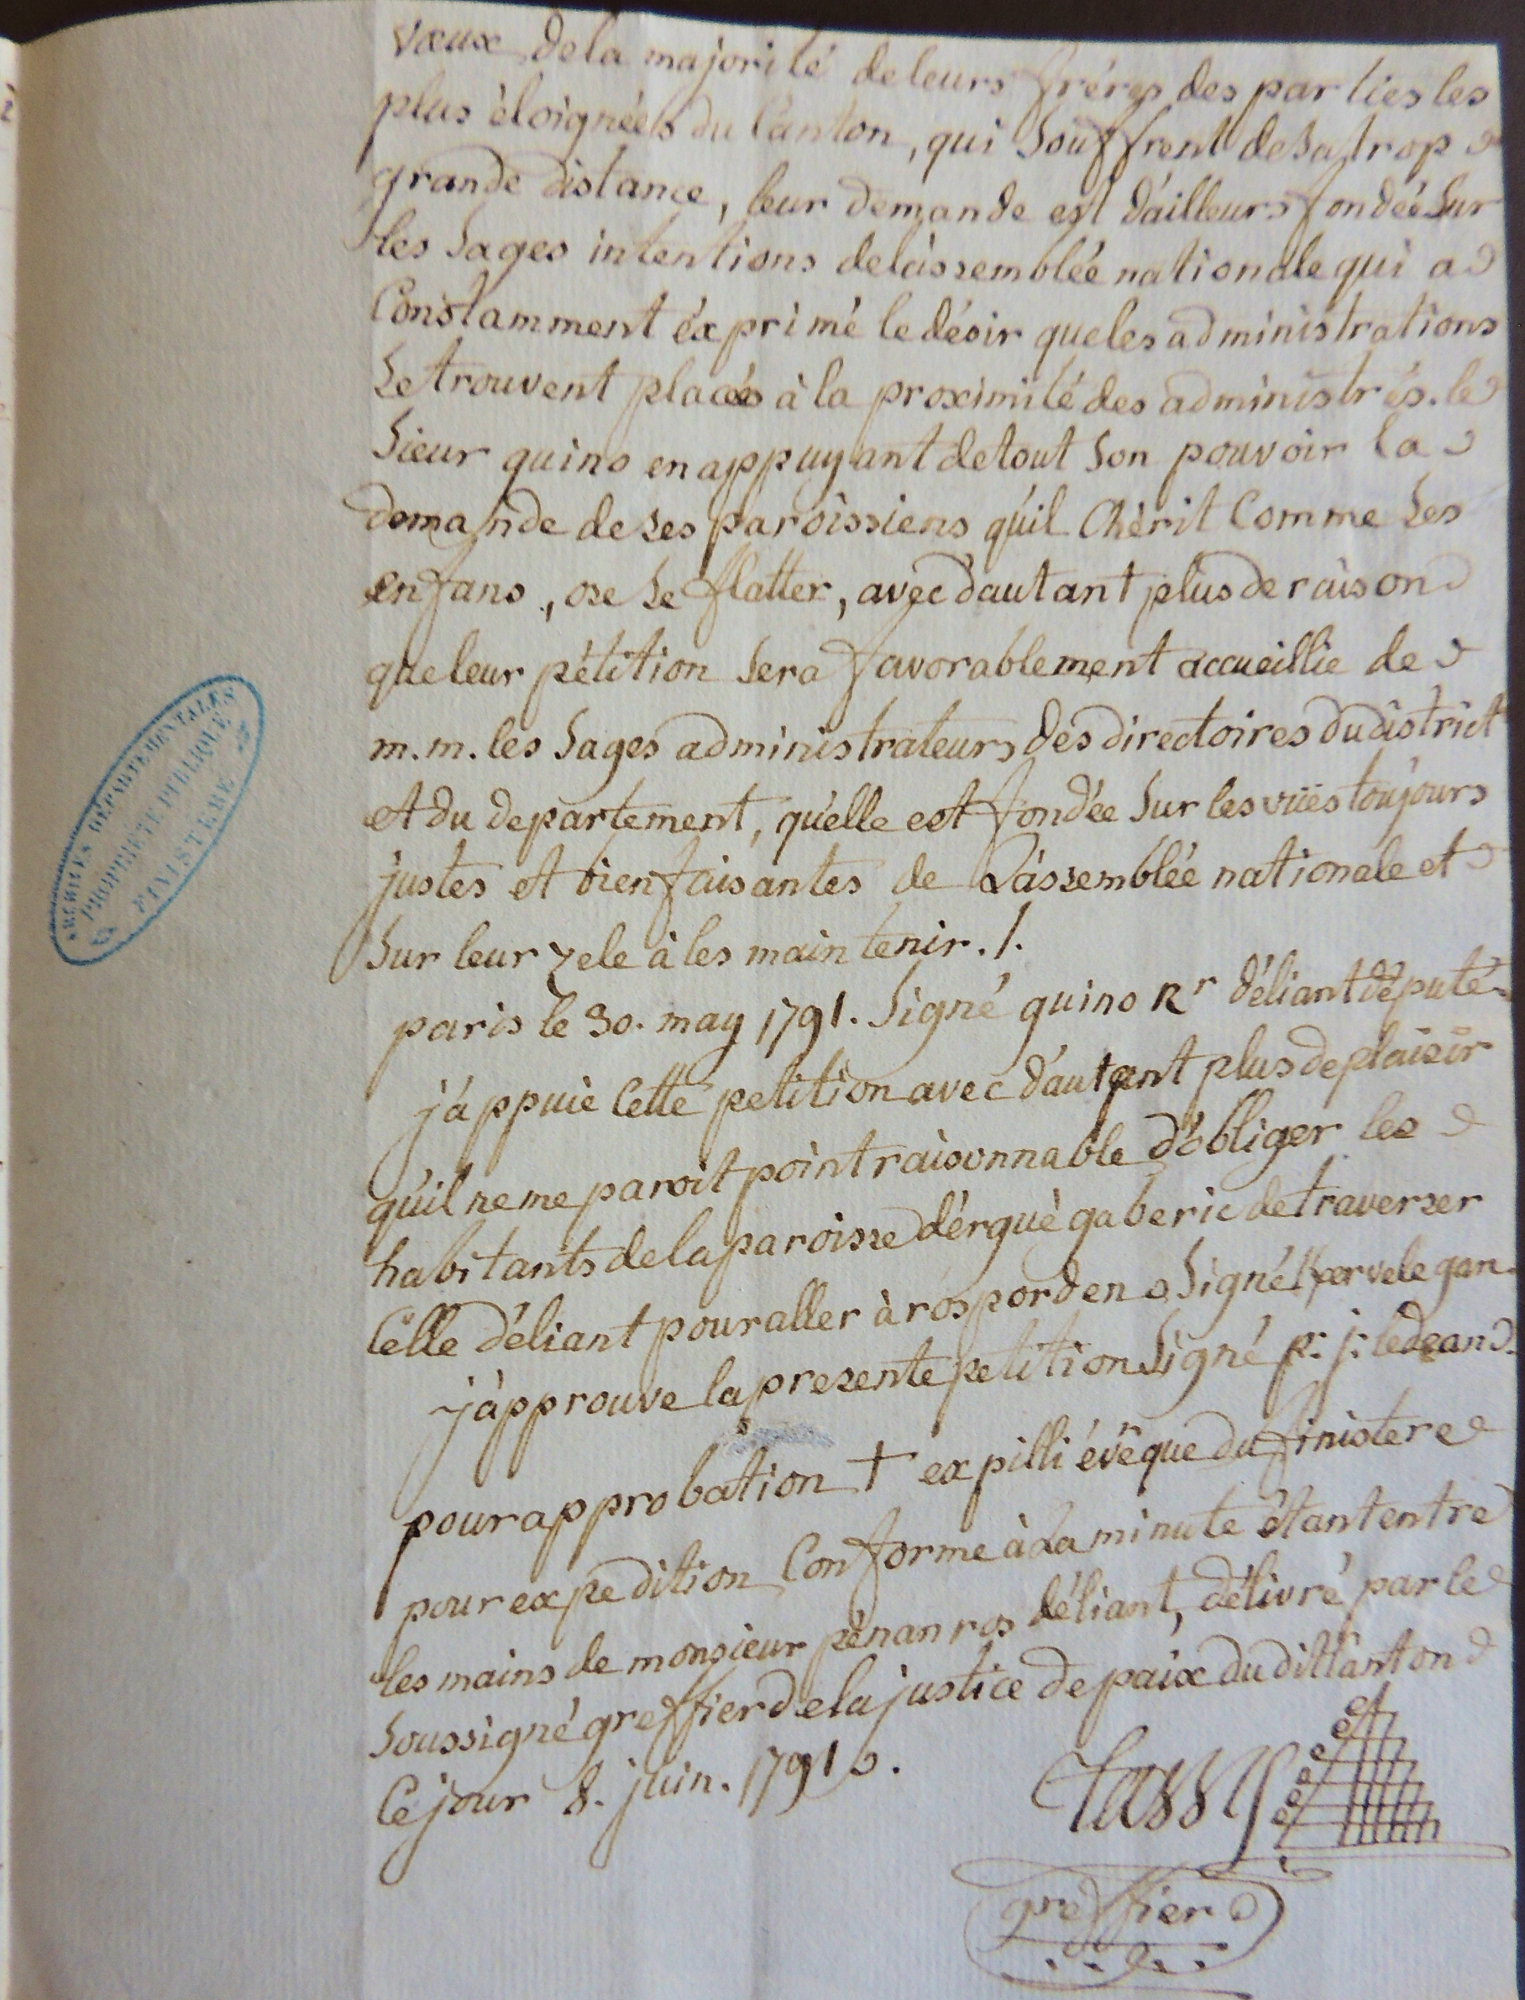 vœux de la majorité de leurs fréres des parties les
plus éloignées du Canton, qui souffrent de sa trop
grande distance, leur demande est d'ailleurs fondée sur
les sages intentions de l'assemblée nationale qui a
Constamment éxprimé le désir que les administrations
se trouvent placées à la proximité des administrés. le
sieur guino en appuyant de tout son pouvoir la
demande de ses paroissiens qu'il Chèrit Comme ses
enfans, ose se flatter, avec d'autant plus de raison
que leur pétition sera favorablement accueillie de
m.m. les sages administrateurs des directoires du district
et du departement, qu'elle est fondée sur les vuës toujours
justes et bienfaisantes de L'assemblée nationale et
sur leur zele à les maintenir./.
paris le 30. may 1791. signé guino Rr d'éliant député
j'appuiè Cette petition avec d'autant plus de plaisir
qu'il ne me paroit point raisonnable d'obliger les
habitants de la paroisse d'érgué gaberic de traverser
Celle d'éliant pour aller à rosporden signé Kervelegan.
j'approuve la presente petition signé p: j: ledean
pour approbation † expilli évêque du finistere
pour expedition Conforme à La minute étant entre
les mains de monsieur pénanros d'éliant, délivré par le
soussigné greffier de la justice de paix du dit Canton
Ce jour 8. juin. 1791.
greffier
ARCHIVES DÉPARTEMENTALES
PROPRIÉTÉ PUBLIQUE
FINISTÈRE